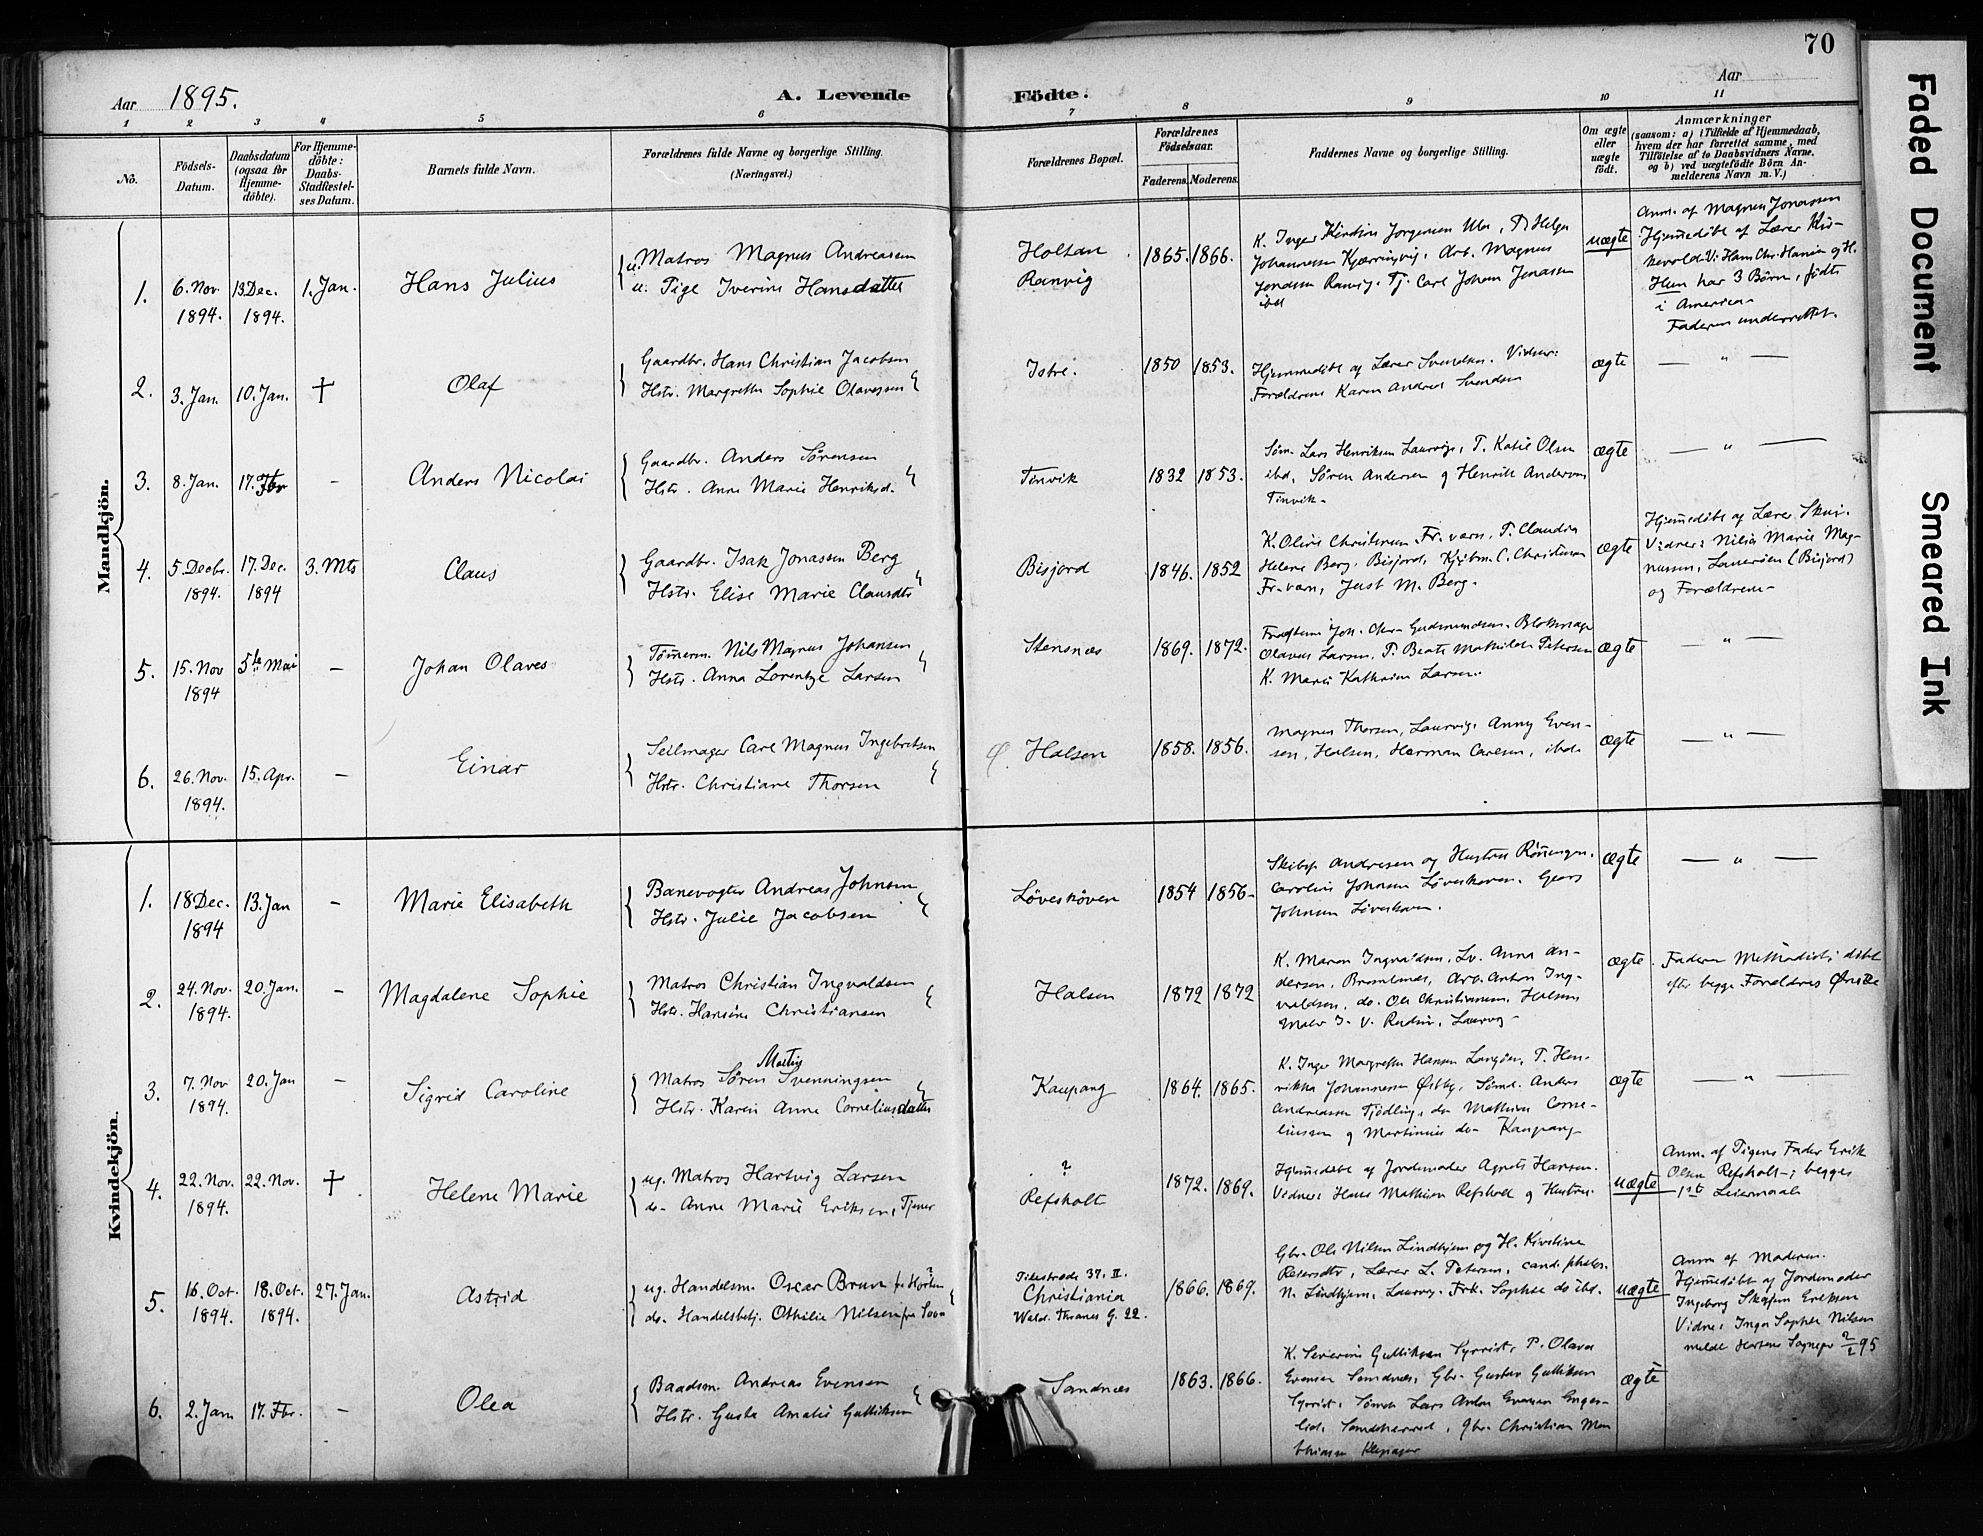 70
Aar 1895.
A. Levende Födte.
Aar
1 2 3 4 5 6 7 8 9 10 11
No.
Födsels-Datum.
Daabsdatum (ogsaa for Hjemme-döbte).
For Hjemme-döbte: Daabs-Stadfæstel-ses Datum.
Barnets fulde Navn.
Forældrenes fulde Navne og borgerlige Stilling.
(Næringsvei.)
Forældrenes Bopæl.
Forældrenes Födselsaar.
Faderens. Moderens.
Faddernes Navne og borgerlige Stilling.
Om ægte eller uægte födt.
Anmærkninger
(saasom: a) i Tilfælde af Hjemmedaab,
hvem der har forrettet samme, med
Tilföielse af to Daabsvidners Navne,
og b) ved uægtefödte Börn An-
melderens Navn m. V.)
Mandkjön.
1. 6. Nov 1894. 13. Dec. 1894. 1. Jan. Hans Julius
u. Matros Magnus Andreassen
u. Pige Iverine Hansdatter
Holtan
Ranvig
1865. 1866.
K. Inger Jorgensen P. Helga
Johannessen Kjærringvig, Arb. Magnus
Jonassen Ranvig. Tj. Carl Johan Jonassen
ibd
uægte
Anm. af Magnus Jonassen
Hjemmedöbt af Lærer
Hun har 3 Börn, födte
i America.
Faderen underrettet.
2. 3. Jan. 10. Jan. † Olaf
Gaardbr. Hans Christian Jacobsen
Hstr. Margrethe Sophie Olavessen
Istre.
1850 1853.
Hjemmedöbt af Lærer Svendsen. Vidner:
Forældrene Karen Andrea Svendsen
ægte
— " —
3. 8. Jan. 17. Fbr - Anders Nicolai
Gaardbr. Anders Sörensen
Hstr. Anne Marie Henriksd.
Tinvik
1832 1853.
Söm. Lars Henriksen Laurvig, P. Katie Olsen
ibd, Sören Andersen og Henrik Andersen
Tinvik.
ægte
— " —
4. 5. Decbr. 1894. 17. Dec. 1894 3. Mts Claus
Gaardbr. Isak Jonassen Berg
Hstr. Elise Marie Clausdtr
Bisjord
1846. 1852
K. Olive Christensen Fr.værn, P. Claudia
Helene Berg, Bisjord, Kjöbm. C. Christensen
Fr.værn, Just M. Berg.
ægte
Hjemedöbt af Lærer Skui.
Vidner: Nilia Marie Mag-
nussen, (Bisjord)
og Forældrene
5. 15. Nov 1894 5te Mai - Johan Olaves
Tömerm. Nils Magnus Johansen
Hstr. Anna Lorentze Larsen
Stensnæs
1869. 1872.
Joh. Chr. Gudmundsen. Blokmager
Olaves Larsen, P. Beate Mathilde Petersen
K. Marie Kathrine Larsen.
ægte
— " —
6. 26. Nov. 1894. 15. Apr. - Einar
Seilmager Carl Magnus Ingebretsen
Hstr. Christiane Thorsen
Ø. Halsen
1858. 1856.
Magnus Thorsen, Laurvig, Anny Even-
sen, Halsen, Herman Carlsen, ibd.
ægte
— " —
Kvindekjön.
1. 18 Dec. 1894 13. Jan - Marie Elisabeth
Banevogter Andreas Johnsen
Hstr. Julie Jacobsen
Löveskoven
1854 1856
Skibsf. Andresen og Hustru Rönningen.
Caroline Johnsen Löveskoven. Georg
Johnsen Löveskoven.
ægte
— " —
2. 24. Nov. 1894. 20. Jan. - Magdalene Sophie
Matros Christian Ingvaldsen
Hstr. Hansine Christiansen
Halsen
1872 1872
K. Maren Ingvaldsen, Lv. Anna An-
dersen, Bromlnæs, Arb. Anton Ing-
valdsen, do. Ole Christiansen, Halsen,
Laurvig
ægte
Faderen Methodist; döbt
efter begge Forældres Ønske
3. 7. Nov 1894. 20. Jan - Sigrid Caroline
Matros Sören Mathis Svenningsen
Hstr. Karen Anne Corneliusdatter
Kaupang
1864. 1865.
K. Inger Margrethe Hansen Langöen, P. Hen-
rikka Johannessen Østby, Sömd. Anders
Andreassen Tjödling, do Mathias Corne-
liussen og Martinius do. Kaupang
ægte
— " —
4. 22. Nov. 1894. 22. Nov. † Helene Marie
ug. Matros Hartvig Larsen
do. Anne Marie Eriksen, Tjener
?
Refsholt
1872. 1869.
Hjemedöbt af Jordemoder Agnete Hansen.
Vidner: Hans Mathisen Refsholt og Hustru.
uægte
Anm. af Pigens Fader Erik
Olsen Refsholt; begges
1ste Leiermaal
5. 16. Oct. 1894. 18. Oct. 1894. 27. Jan. Astrid
ug. Handelsm. Oscar Bruun fra Horten?
do. Handelsbetj. Othilie Nilsen fra
Pilestræde 37. II.
Christiania
Wald. Thranes G. 22.
1866. 1869.
Gbr. Ole Nilsen Lindhjem og H. Kirstine
Pedersdtr, Lærer L. Petersen, cand. philos.
N. Lindhjem, Laurvig. Frk. Sophie do ibd.
uægte
Anm. af Moderen.
Hjemedöbt af Jordemoder
Ingeborg Eriksen
Vidne: Inger Sophie Nilsen
meldt Hortens Sognepr 2/2 95
6. 2. Jan 17. Fbr. - Olea
Baadsm. Andreas Evensen
Hstr. Gusta Amalie Gulliksen
Sandnæs
1863. 1866.
K. Severine Gulliksen Syrrist, P. Olava
Evensen Sandnæs, Gbr. Gustav Gulliksen
Syrrist, Sömd. Lars Anton Evensen Enges-
lid, Sandeherred, Gbr. Christian Ma-
thiassen Klepager
ægte
Faded Document
Smeared Ink